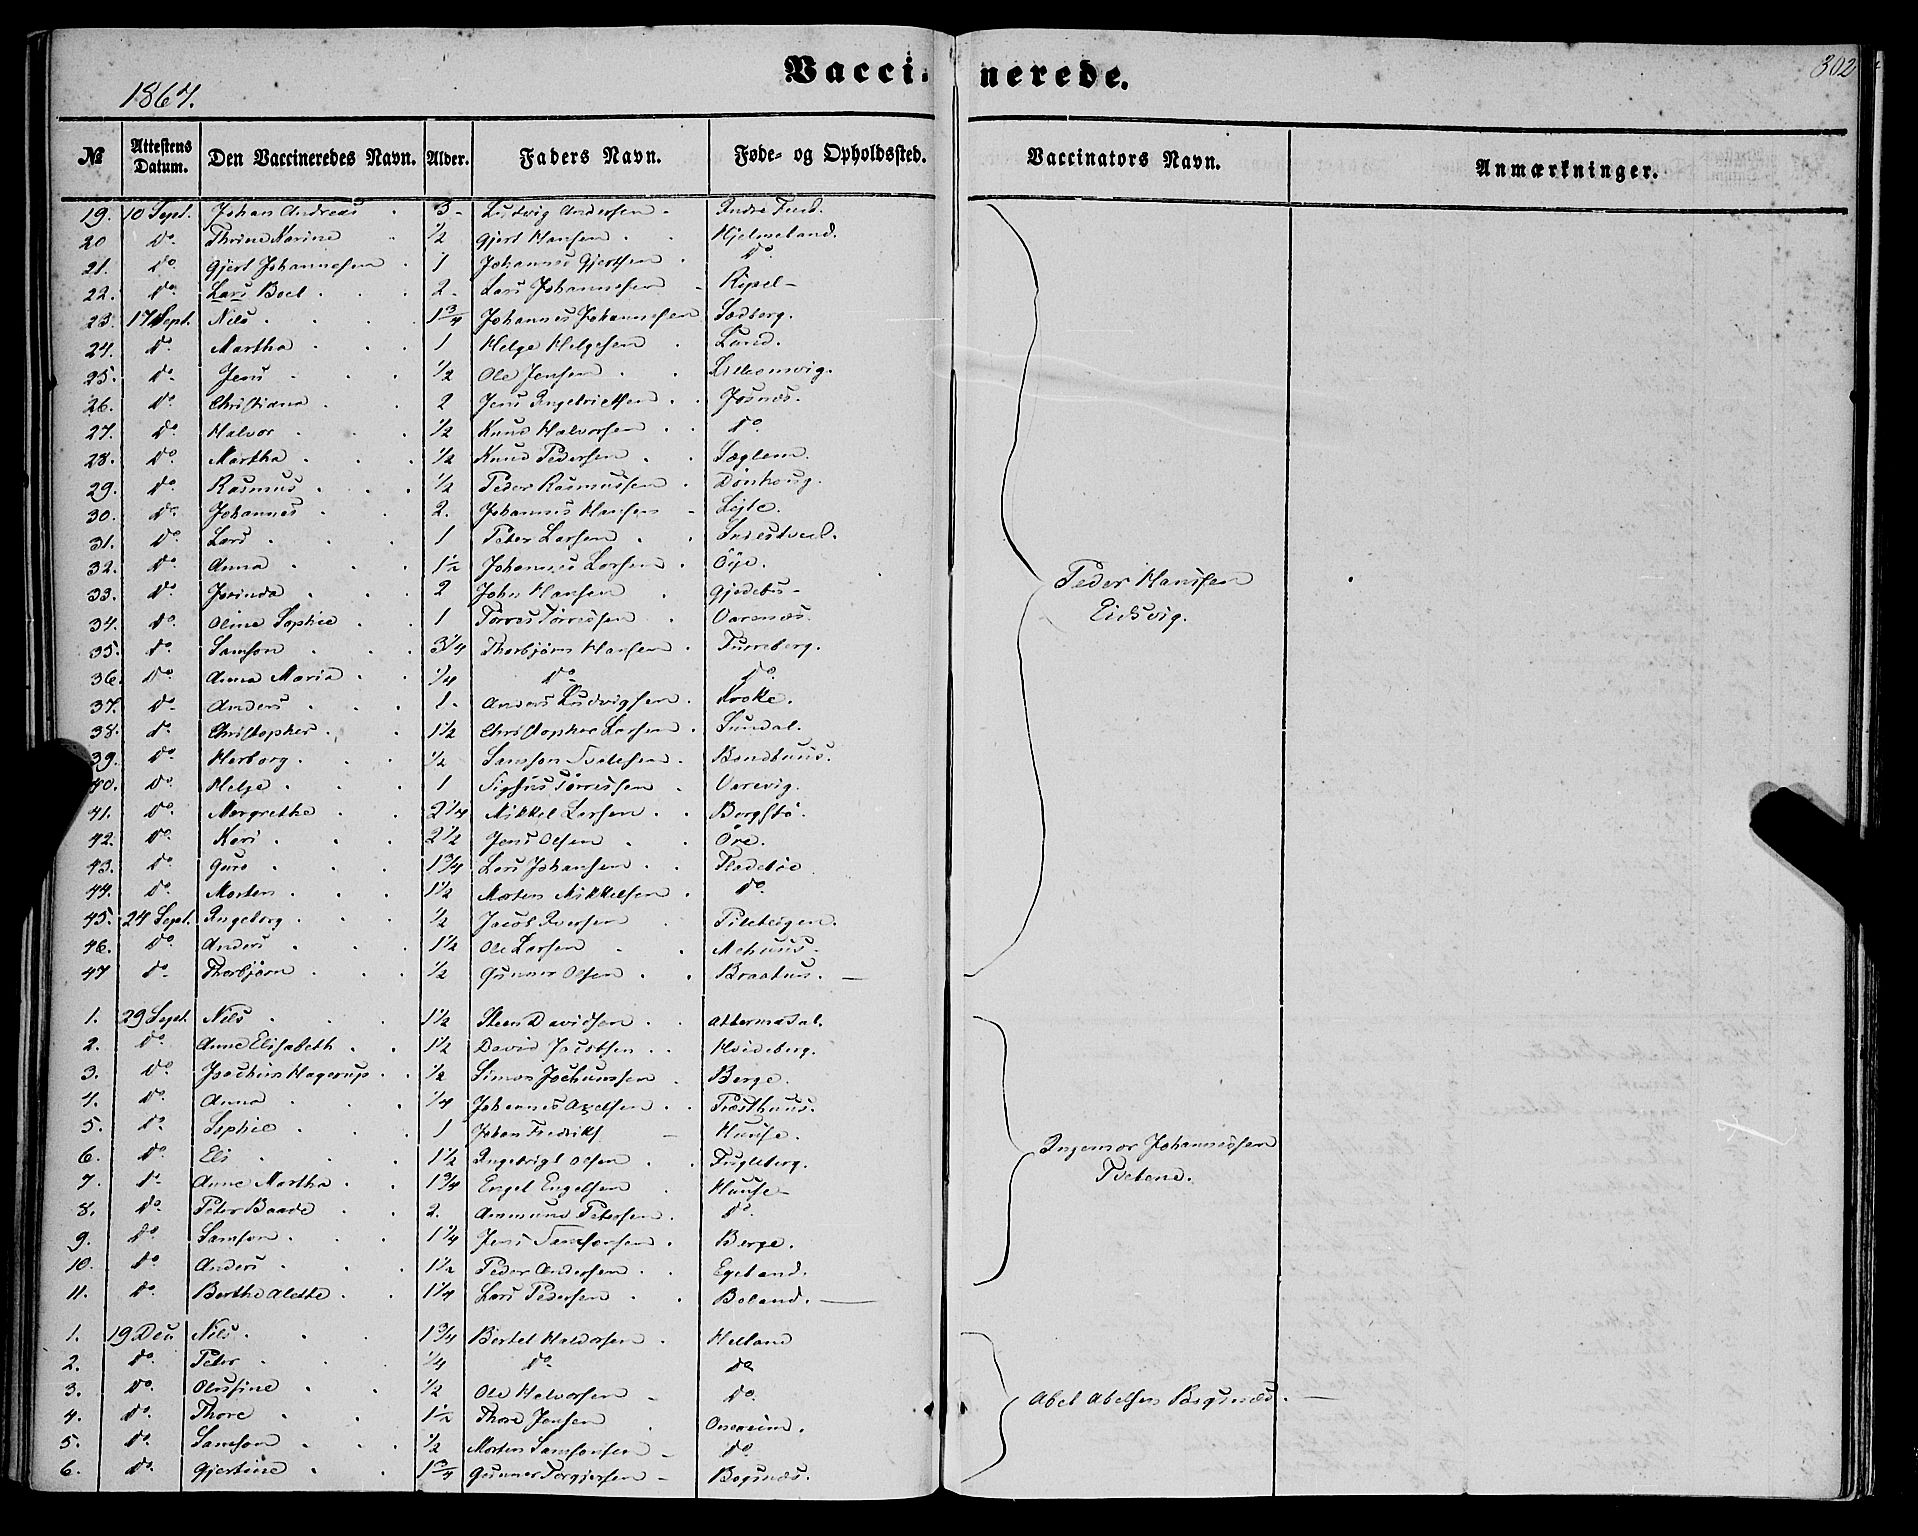 Vaccinerede.
302
1867.
№ Attestens Datum. Den Vaccineredes Navn. Alder. Faders Navn. Føde- og Opholdssted. Vaccinators Navn. Anmærkninger.
19. 10 Sept. Johan Andreas 3 Ludvig Andersen Indre Tud.
20 do Thrine Marine 1/2 Gjert Hansen Hjelmeland.
21. do Gjert Johannesen 1 Johannes Gjertsen do
22. do Lars Boel 2 Lars Johannesen Ripel
23. 17 Sept. Nils 1 3/4 Johannes Johannesen Sadberg.
24. do Martha 1 Helge Helgesen Lund.
25. do Jens 1/2 Ole Jensen
26. do Christiana 2 Jens Ingebrictsen Josnæs.
27. do Halvor 1/2 Knud Halvorsen do
28. do Martha 1/2 Knud Pedersen Sæglem.
29. do Rasmus 1/2 Peder Rasmussen Dønhoug.
30. do Johannes 2. Johannes Hansen Lejte.
31. do Lars 1 Peter Larsen
32. do Anna 1 1/2 Johannes Larsen Øye.
33. do 2 John Hansen Gjedebu
34. do Oline Sophie 1 Torres Torressen Varsnæs.
35. do Samson 3 1/4 Thorbjørn Hansen Tureberg.
36. do Anna Maria 1/4 do do
37. do Anders 1. Anders Ludvigsen Kroke.
38. do Christopher 1 1/2 Christopher Larsen Sundal.
39. do Herborg 1/2 Samson Tvetesen Bondhuus.
40. do Helge 1 Sigfus Torressen Varevig.
41. do Margrethe 2 1/4 Mikkel Larsen Bergstø.
42. do Kari 2 1/2 Jens Olsen Øre.
43. do Guro 1 3/4 Lars Johansen Fladebøe
44. do Morten 1 1/2 Morten Mikkelsen do
45. 24 Sept. Ingeborg 1/2 Jacob Iversen
46. do Anders 1 1/2 Ole Larsen Mehuus
47 do Thorbjørn 1/2 Gunner Olsen Braatun.
Peder Hanssen
Eidsvig.
1. 29 Sept. Nils 1 1/2 Steen Davidsen Attermadal.
2. do Anne Elisabeth 1 1/2 David Jacobsen Hvideberg.
3. do Jochum Hagerup 1/2 Simon Jochumsen Berge.
4. do Anna 1/4 Johannes Axelsen Præsthuus.
5. do Sophie 1 Johan Fredriks Huuse.
6. do Eli 1 1/2 Ingebrigt Olsen Fugleberg.
7. do Anne Martha 1 3/4 Engel Engelsen Huuse
8. do Peter Baade 2. Ammund Petersen do
9. do Samson 1 1/4 Jens Samsonsen Berge.
10. do Anders 1 1/2 Peder Andersen Egeland.
11. do Berthe Alethe 1 1/4 Lars Pedersen Boland.
Ingemor Johannessen
Tvetene.
1. 19 Dec Nils 1 3/4 Bertel Haldorsen Helland
2. do Peter 1/4 do do
3. do Olufine 1/2 Ole Halvorsen do
4. do Thore 1 1/2 Thore Jensen Onarheim.
5. do Samson 1/2 Morten Samsonsen do
6. do Gjertine 1 3/4 Gunner Torgjersen Bogsnæs.
Abel Abelsen Bogsnæs.